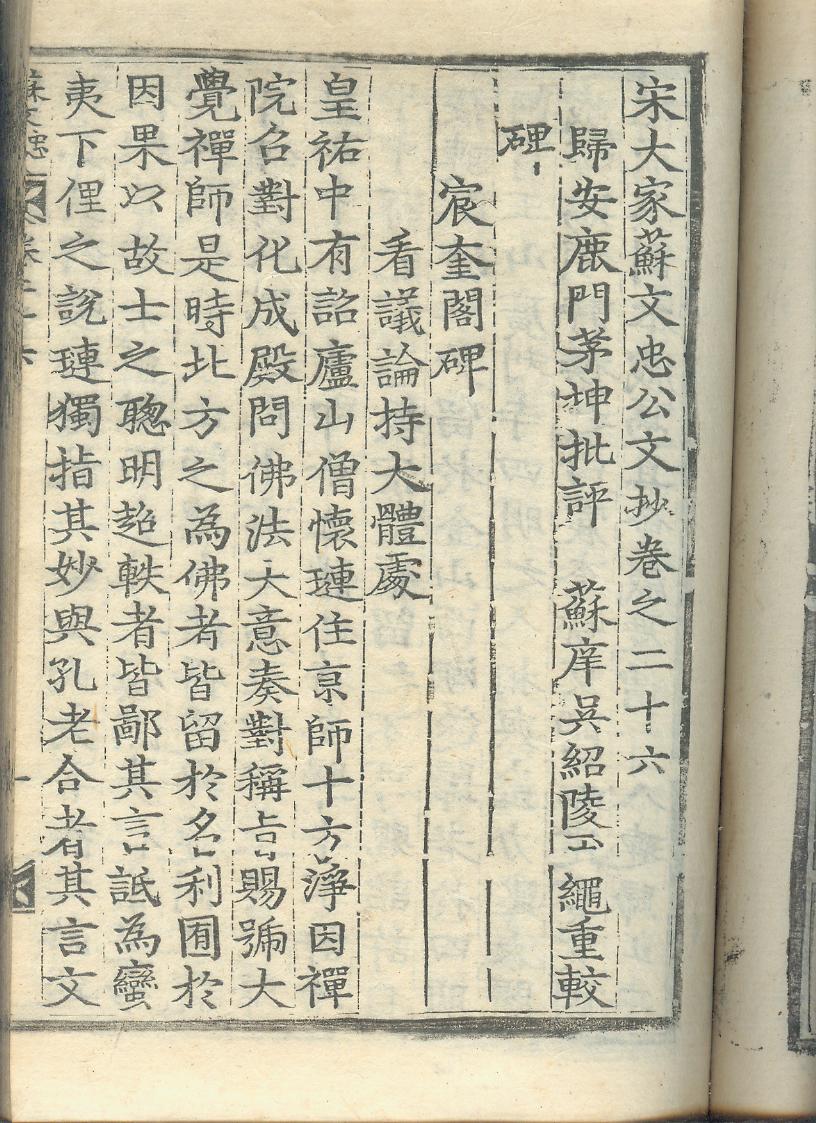 宋大家蘇文忠公文抄卷之二十六
歸安鹿門茅坤批評 蘇庠吳紹陵 繩重較
碑
宸奎閣碑
看議論持大體處
皇祐中有詔廬山僧懷璉住京師十方淨因禪
院召對化成殿問佛法大意奏對稱旨賜號大
覺禪師是時北方之為佛者皆留於名利囿於
因果以故士之聰明超軼者皆鄙其言詆為蠻
夷下俚之說璉獨指其妙與孔老合者其言文
蘇文忠 卷二十六 一